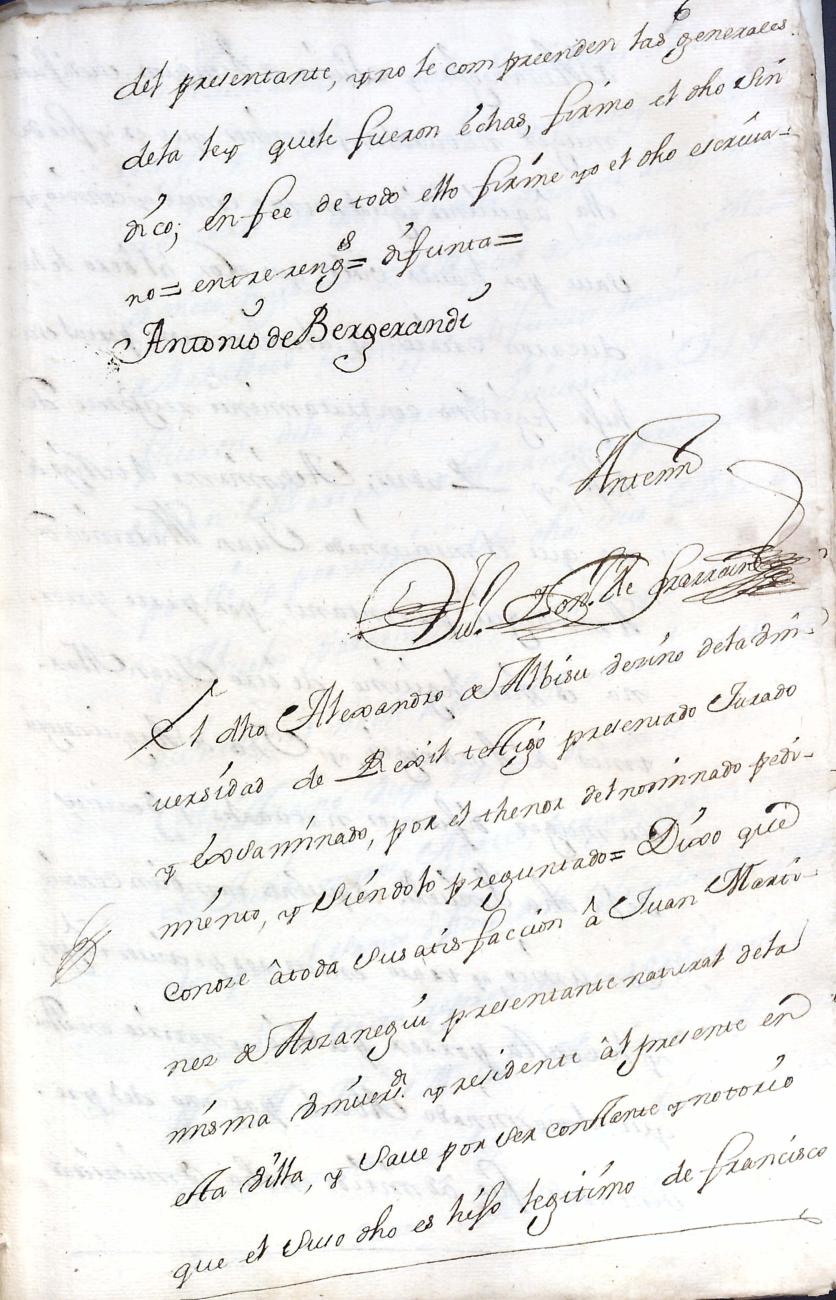 6
del presentante, y no le comprenden las generales
dela ley quele fueron èchas, firmo el dho Sin
dico; èn fee de todo ello firmè yo el dho escriva-
no= entre reng.s= difunta=
Antonio de Bergerandi
Antemi
El dho Alexandro de Albisu vezino dela Vni-
versidad de Rexil testigo presentado Jurado
y èxsaminado, por el thenor del nominado pedi-
miento, y Siendolo preguntado= Dixo que
conoze âtoda su satisfaccion â Juan Marti-
nez de Arzanegui presentante natural dela
misma Vniversd. y residente âl presente en
esta Villa, y Save por ser constante y notorio
que el Suso dho es hijo legitimo de francisco